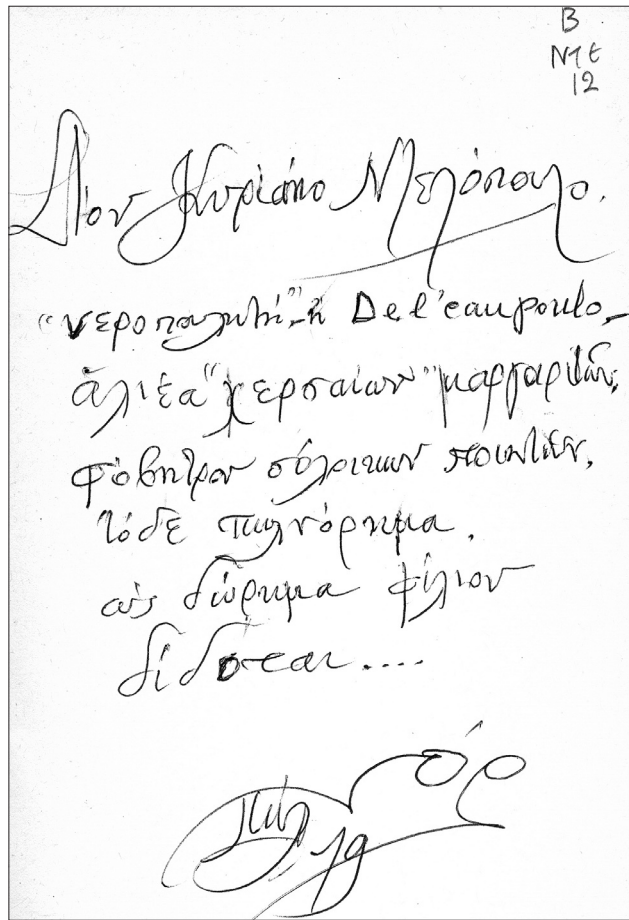 Β
ΝΤΕ
12
Στον Κυριάκο Ντελόπουλο.
"νεροπωλητή", ἢ De l'eaupoulo,
ἁλιέα "χερσαίων" μαργαριτῶν,
φόβητρον ποιητῶν,
τόδε
ὡς δώρημα φίλιον
δίδοται....